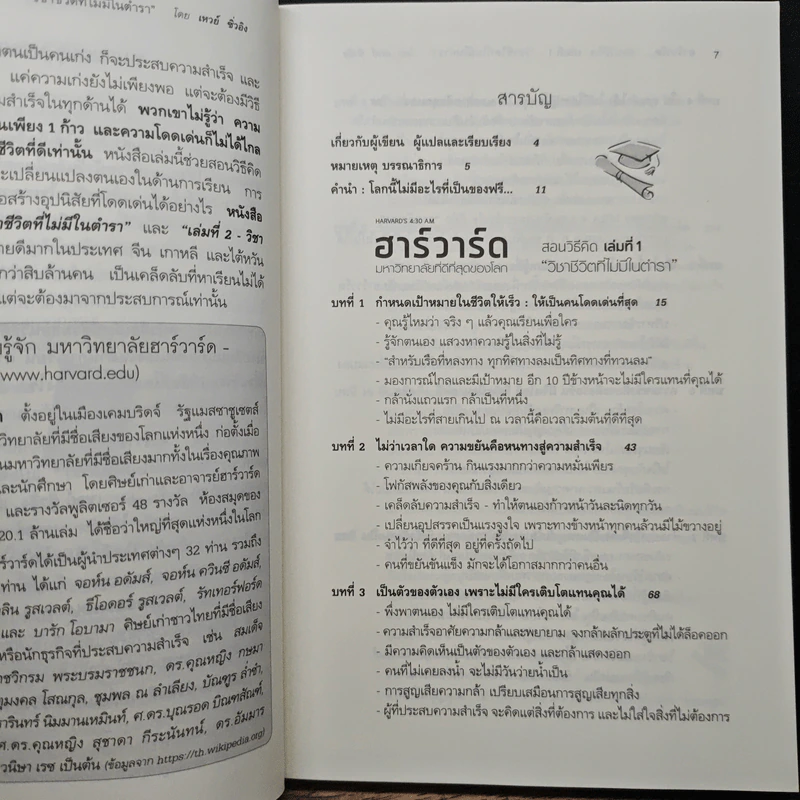 วิชาชีวิตที่ไม่มีในตำรา"
โดย เหวย์ ซิ่วอิง
ตนเป็นคนเก่ง ก็จะประสบความสำเร็จ และ
แค่ความเก่งยังไม่เพียงพอ แต่จะต้องมีวิธี
สำเร็จในทุกด้านได้ พวกเขาไม่รู้ว่า ความ
นเพียง 1 ก้าว และความโดดเด่นก็ไม่ได้ไกล
ชีวิตที่ดีเท่านั้น หนังสือเล่มนี้ช่วยสอนวิธีคิด
ะเปลี่ยนแปลงตนเองในด้านการเรียน การ
อสร้างอุปนิสัยที่โดดเด่นได้อย่างไร หนังสือ
าชีวิตที่ไม่มีในตำรา" และ "เล่มที่ 2 - วิชา
ายดีมากในประเทศ จีน เกาหลี และไต้หวัน
กว่าสิบล้านคน เป็นเคล็ดลับที่หาเรียนไม่ได้
แต่จะต้องมาจากประสบการณ์เท่านั้น
รู้จัก มหาวิทยาลัยฮาร์วาร์ด -
www.harvard.edu)
ตั้งอยู่ในเมืองเคมบริดจ์ รัฐแมสซาชูเซตส์
วิทยาลัยที่มีชื่อเสียงของโลกแห่งหนึ่ง ก่อตั้งเมื่อ
นมหาวิทยาลัยที่มีชื่อเสียงมากทั้งในเรื่องคุณภาพ
และนักศึกษา โดยศิษย์เก่าและอาจารย์ฮาร์วาร์ด
และรางวัลพูลิตเซอร์ 48 รางวัล ห้องสมุดของ
20.1 ล้านเล่ม ได้ชื่อว่าใหญ่ที่สุดแห่งหนึ่งในโลก
ร์วาร์ดได้เป็นผู้นำประเทศต่างๆ 32 ท่าน รวมถึง
ท่าน ได้แก่ จอห์น อดัมส์, จอห์น ควินซี อดัมส์,
ลิน รูสเวลต์, ธีโอดอร์ รูสเวลต์, รัทเทอร์ฟอร์ด
และ บารัก โอบามา ศิษย์เก่าชาวไทยที่มีชื่อเสียง
หรือนักธุรกิจที่ประสบความสำเร็จ เช่น สมเด็จ
าชวิกรม พระบรมราชชนก, ดร.คุณหญิง กษมา
มงคล โสณกุล, ชุมพล ณ ลำเลียง, บัณฑูร ล่ำซำ,
ารินทร์ นิมมานเหมินท์, ศ.ดร.บุณรอด บิณฑสัณฑ์,
ศ.ดร.คุณหญิง สุชาดา กีระนันทน์, ดร.อัมมาร
วนิษา เรซ เป็นต้น (ข้อมูลจาก https://th.wikipedia.org)
7
สารบัญ
เกี่ยวกับผู้เขียน ผู้แปลและเรียบเรียง 4
หมายเหตุ บรรณาธิการ 5
คำนำ : โลกนี้ไม่มีอะไรที่เป็นของฟรี... 11
HARVARD'S 4:30 A.M.
ฮาร์วาร์ด สอนวิธีคิด เล่มที่ 1
มหาวิทยาลัยที่ดีที่สุดของโลก "วิชาชีวิตที่ไม่มีในตำรา"
บทที่ 1 กำหนดเป้าหมายในชีวิตให้เร็ว : ให้เป็นคนโดดเด่นที่สุด 15
- คุณรู้ไหมว่า จริง ๆ แล้วคุณเรียนเพื่อใคร
- รู้จักตนเอง แสวงหาความรู้ในสิ่งที่ไม่รู้
- "สำหรับเรือที่หลงทาง ทุกทิศทางลมเป็นทิศทางที่ทวนลม"
- มองการณ์ไกลและมีเป้าหมาย อีก 10 ปีข้างหน้าจะไม่มีใครแทนที่คุณได้
- กล้านั่งแถวแรก กล้าเป็นที่หนึ่ง
- ไม่มีอะไรที่สายเกินไป ณ เวลานี้คือเวลาเริ่มต้นที่ดีที่สุด
บทที่ 2 ไม่ว่าเวลาใด ความขยันคือหนทางสู่ความสำเร็จ 43
- ความเกียจคร้าน กินแรงมากกว่าความหมั่นเพียร
- โฟกัสพลังของคุณกับสิ่งเดียว
- เคล็ดลับความสำเร็จ - ทำให้ตนเองก้าวหน้าวันละนิดทุกวัน
- เปลี่ยนอุปสรรคเป็นแรงจูงใจ เพราะทางข้างหน้าทุกคนล้วนมีไม้ขวางอยู่
- จำไว้ว่า ที่ดีที่สุด อยู่ที่ครั้งถัดไป
- คนที่ขยันขันแข็ง มักจะได้โอกาสมากกว่าคนอื่น
บทที่ 3 เป็นตัวของตัวเอง เพราะไม่มีใครเติบโตแทนคุณได้ 68
- พึ่งพาตนเอง ไม่มีใครเติบโตแทนคุณได้
- ความสำเร็จอาศัยความกล้าและพยายาม จงกล้าผลักประตูที่ไม่ได้ล็อคออก
- มีความคิดเห็นเป็นตัวของตัวเอง และกล้าแสดงออก
- คนที่ไม่เคยลงน้ำ จะไม่มีวันว่ายน้ำเป็น
- การสูญเสียความกล้า เปรียบเสมือนการสูญเสียทุกสิ่ง
- ผู้ที่ประสบความสำเร็จ จะคิดแต่สิ่งที่ต้องการ และไม่ใส่ใจสิ่งที่ไม่ต้องการ